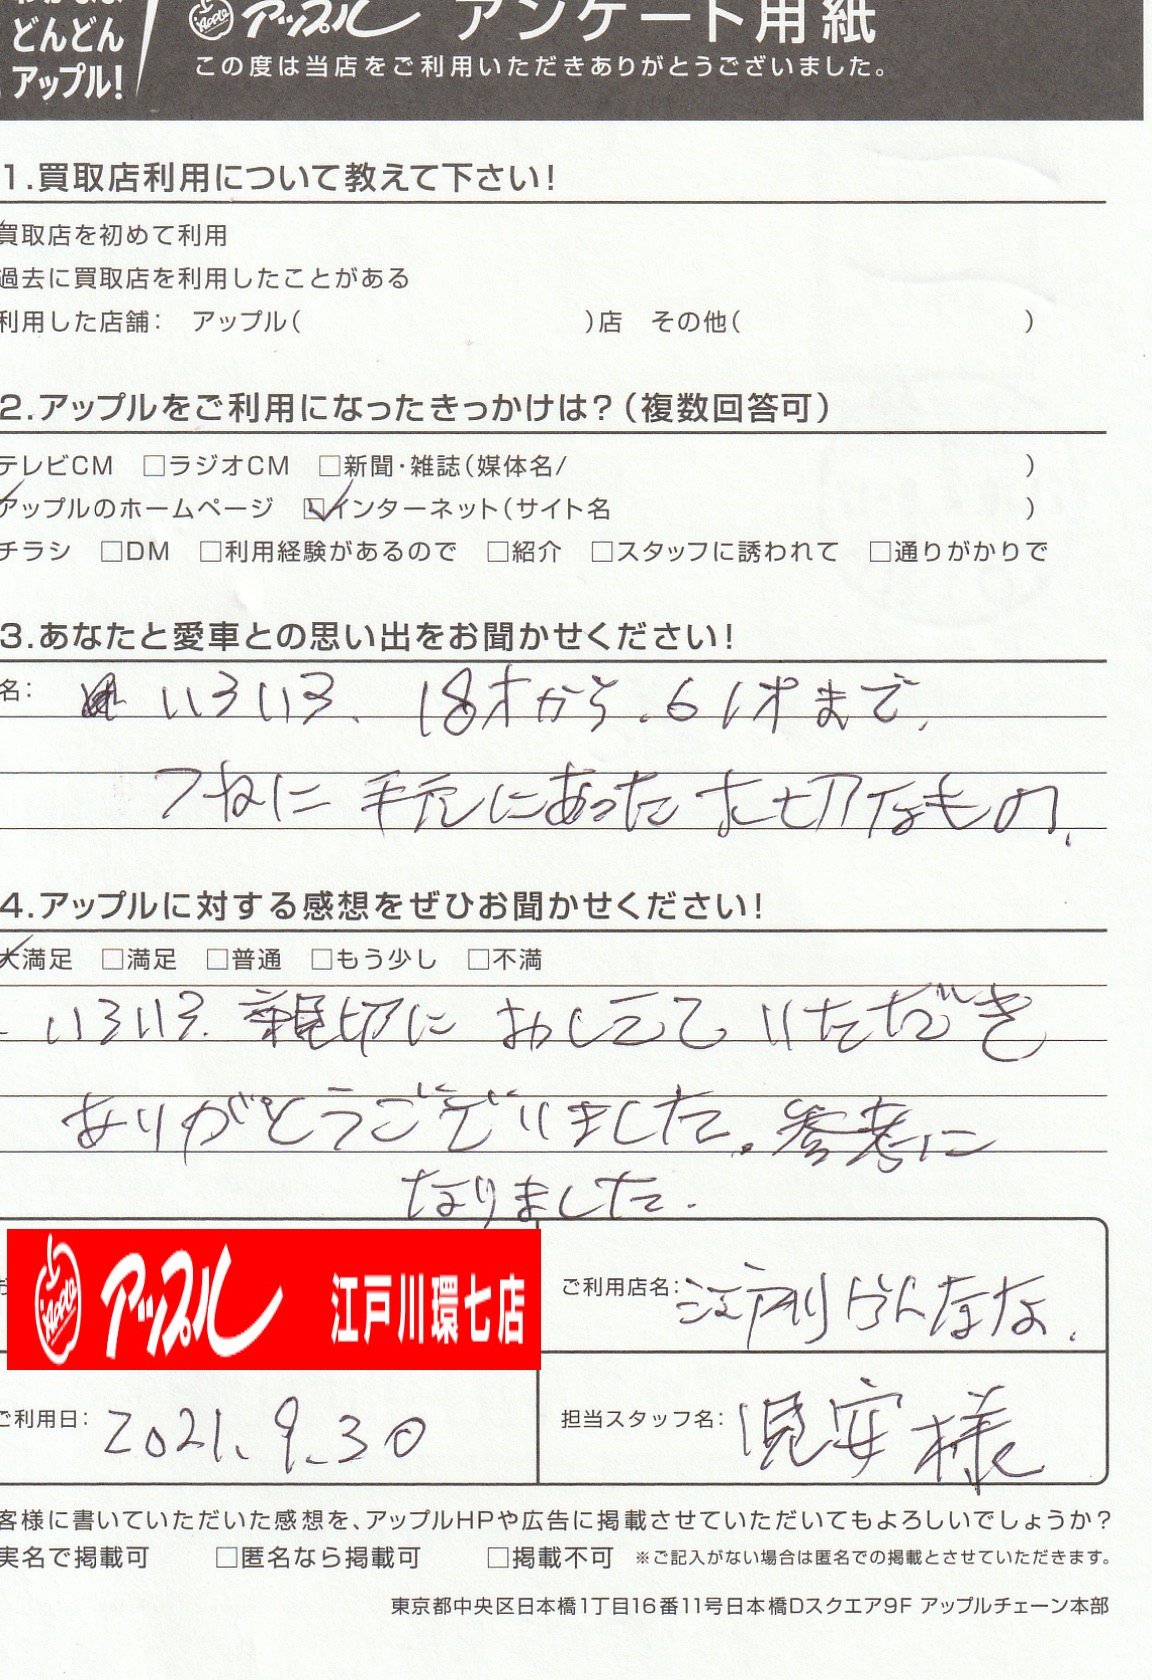 どんどん
アップル!
Apple アップル アンケート用紙
この度は当店をご利用いただきありがとうございました。
1.買取店利用について教えて下さい!
買取店を初めて利用
過去に買取店を利用したことがある
利用した店舗: アップル( )店 その他( )
2.アップルをご利用になったきっかけは?(複数回答可)
テレビCM □ラジオCM □新聞・雑誌(媒体名/ )
アップルのホームページ ☑インターネット(サイト名 )
チラシ □DM □利用経験があるので □紹介 □スタッフに誘われて □通りがかりで
3.あなたと愛車との思い出をお聞かせください!
名: いろいろ、18才から、61才まで、
つねに手元にあった大切なもの、
4.アップルに対する感想をぜひお聞かせください!
大満足 □満足 □普通 □もう少し □不満
いろいろ、親切におしえていただき
ありがとうございました。参考に
なりました。
Apple アップル 江戸川環七店
ご利用店名: 江戸川かんなな、
ご利用日: 2021.9.30
担当スタッフ名: 児安様
客様に書いていただいた感想を、アップルHPや広告に掲載させていただいてもよろしいでしょうか?
実名で掲載可 □匿名なら掲載可 □掲載不可 ※ご記入がない場合は匿名での掲載とさせていただきます。
東京都中央区日本橋1丁目16番11号日本橋Dスクエア9F アップルチェーン本部